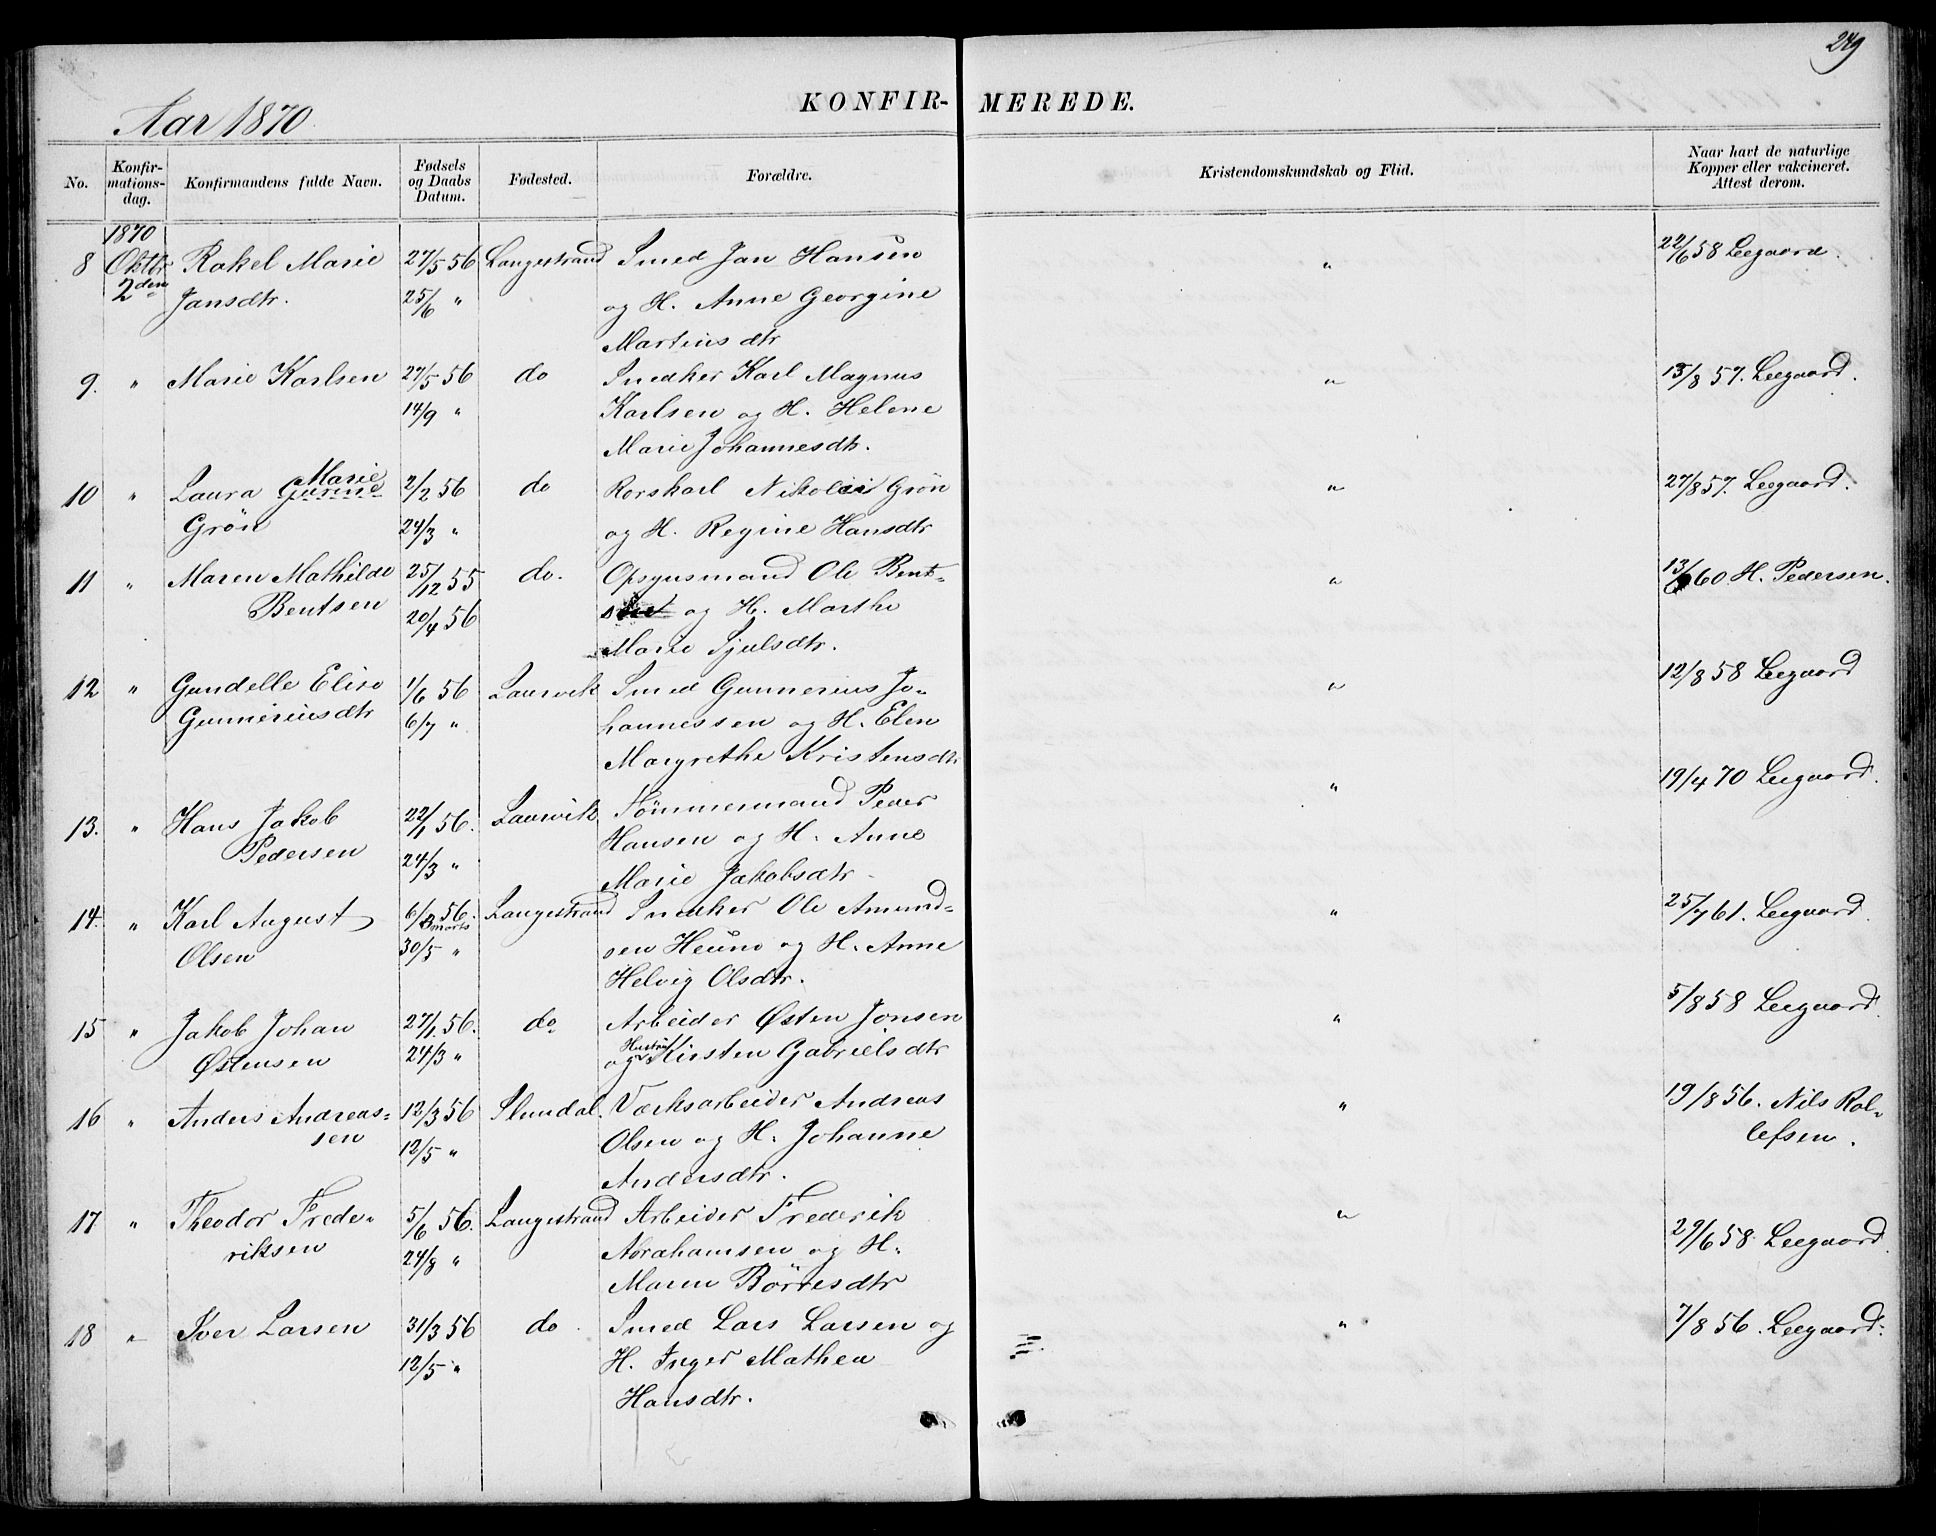 249
KONFIR- MEREDE.
Aar 1870
No. Konfir-mations-dag. Konfirmandens fulde Navn. Fødsels og Daabs Datum. Fødested. Forældre. Kristendomskundskab og Flid. Naar havt de naturlige Kopper eller vakcineret. Attest derom.
1870
8 Oktbr Rakel Marie 27/5 56 Langestrand Smed Jan Hansen " 22/6 58 Leegaard.
2den Jansdtr. 25/6 " og H. Anne Georgine
Martinsdtr
9. " Marie Karlsen 27/5 56 do Snedker Karl Magnus " 13/8 57. Leegaard.
14/9 " Karlsen og H. Helene
Marie Johannesdtr.
Marie
10 " Laura Gurine 2/2 56 do Rorskarl Nikolai Grön " 27/8 57. Leegaard.
Grön 24/3 " og H. Regine Hansdtr
11 " Maren Mathilde 25/12 55 do. Opsynsmand Ole Bent- " 13/9 60 H. Pedersen.
Bentsen 20/4 56 og H. Marthe
Marie Sjulsdtr.
12 " Gundelle Elise 1/6 56 Laurvik Smed Gunnerius Jo- " 12/8 58 Leegaard
Gunneriusdtr 6/7 " hannessen og H. Elen
Margrethe Kristensdtr
13. " Hans Jakob 22/1 56. Laurvik Tømmermand Peder " 19/4 70 Leegaard.
Pedersen 24/3 " Hansen og H. Anne
Marie Jakobsdtr
14. " Karl August 6/3 56. Langestrand Snedker Ole Amund- " 25/7 61. Leegaard.
marts
Olsen 30/5 " sen Heum og H. Anne
Helvig Olsdtr.
15 " Jakob Johan 27/1 56. do Arbeider Østen Jonsen " 5/8 58 Leegaard.
Hustru
Østensen 24/3 " og Kirsten Gabrielsdtr
16 " Anders Andreas- 12/3 56 Slemdal. Værksarbeider Andreas " 19/8 56. Nils Rol-
sen 12/5 " Olsen og H. Johanne lefsen.
Andersdtr.
17 " Theodor Frede- 5/6 56. Langestrand Arbeider Frederik " 29/6 58 Leegaard.
riksen 24/8 " Abrahamsen og H.
Maren Börresdtr
18 " Iver Larsen 31/3 56 do Smed Lars Larsen og " 7/8 56. Leegaard.
12/5 " H. Inger Mathea
Hansdtr.